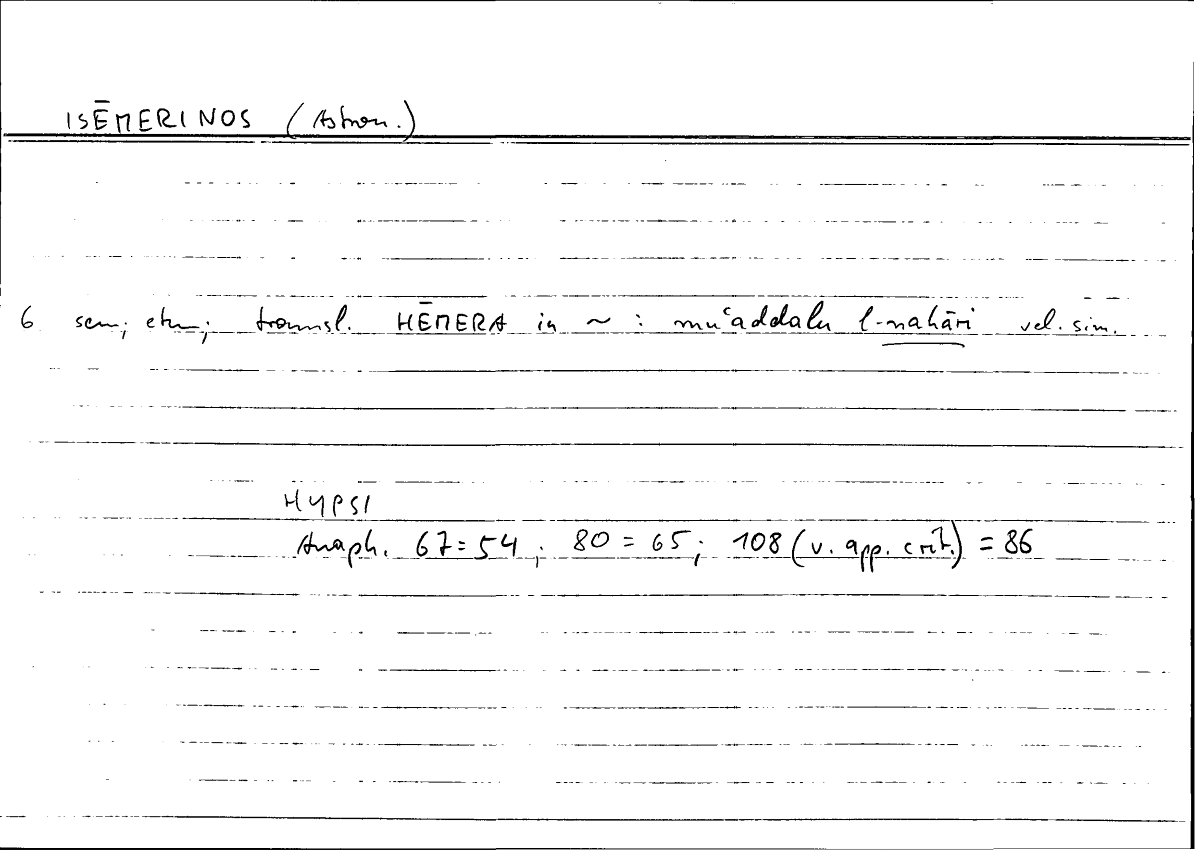 ISĒMERINOS (Astron.)
6 sem; etm; transl. HĒMERA in ~ : muʿaddalu l-nahāri vel. sim.
HYPSI
Anaph. 67=54; 80=65; 108 (v. app. crit.) = 86